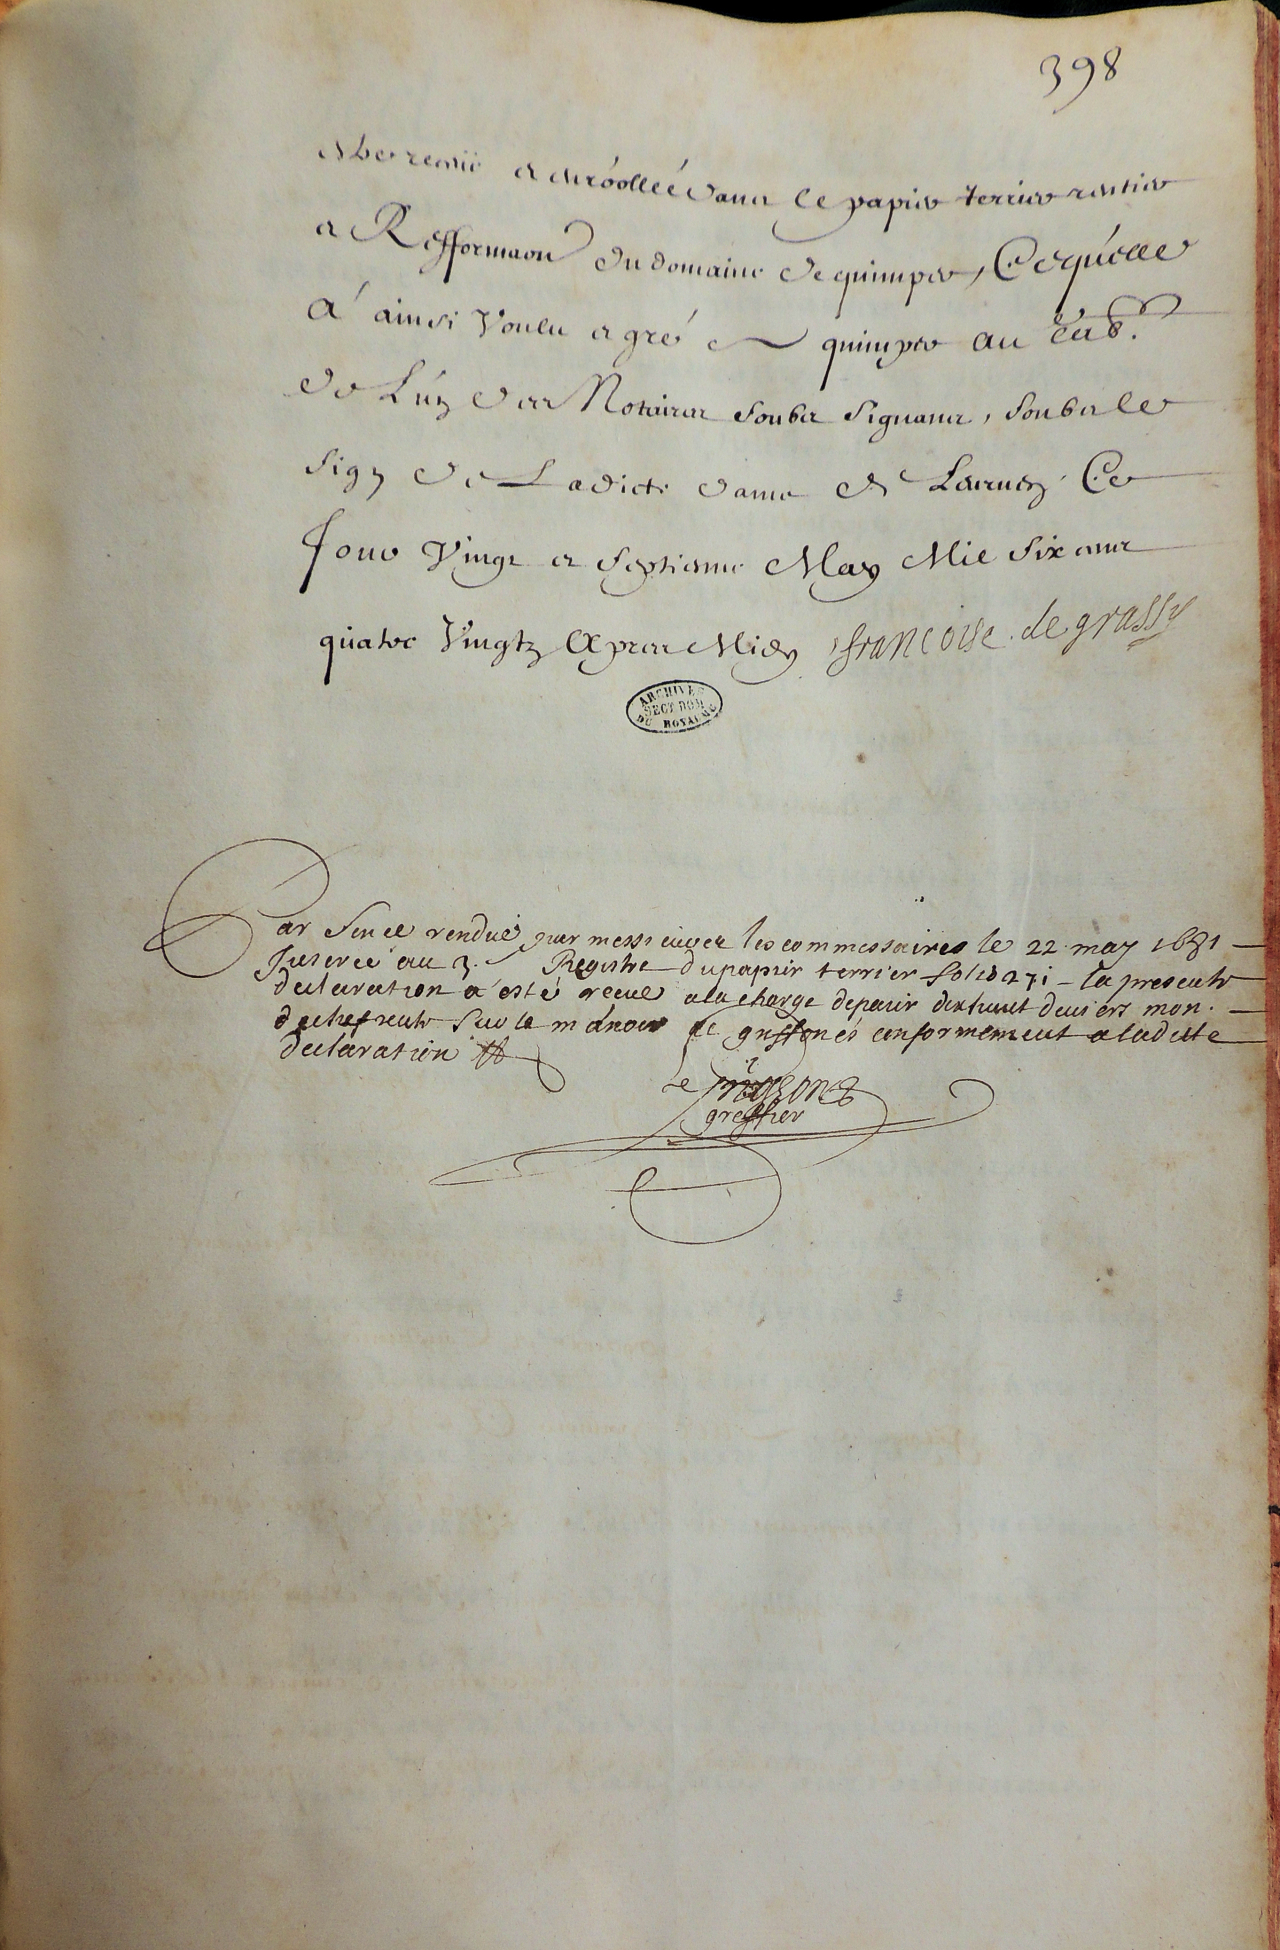 398
et enróollée dans le papier terrier rentier
et Refformaon du domaine de quimper, Ce qu'elle
á ainsi Voulu et gré quimper au
de L'ún des Notaires soubz signants, soubz le
sign de Ladicte dame de Ce
Jour Vingt et septiesme May Mil six cents
quatre Vingtz Apres Midy, francoise de grassy
ARCHIVES
SECT. DOM.
DU ROYAUME
Par Sence rendue par messieurs les commissaires le 22 may 1681
Inseree au 3. Registre du papier terrier folio 271 la presente
declaration a esté receue a la charge de paier dixhuit deniers mon.
de chefrente sur le manoir de griffonés conformement a ladite
declaration
Le
greffier